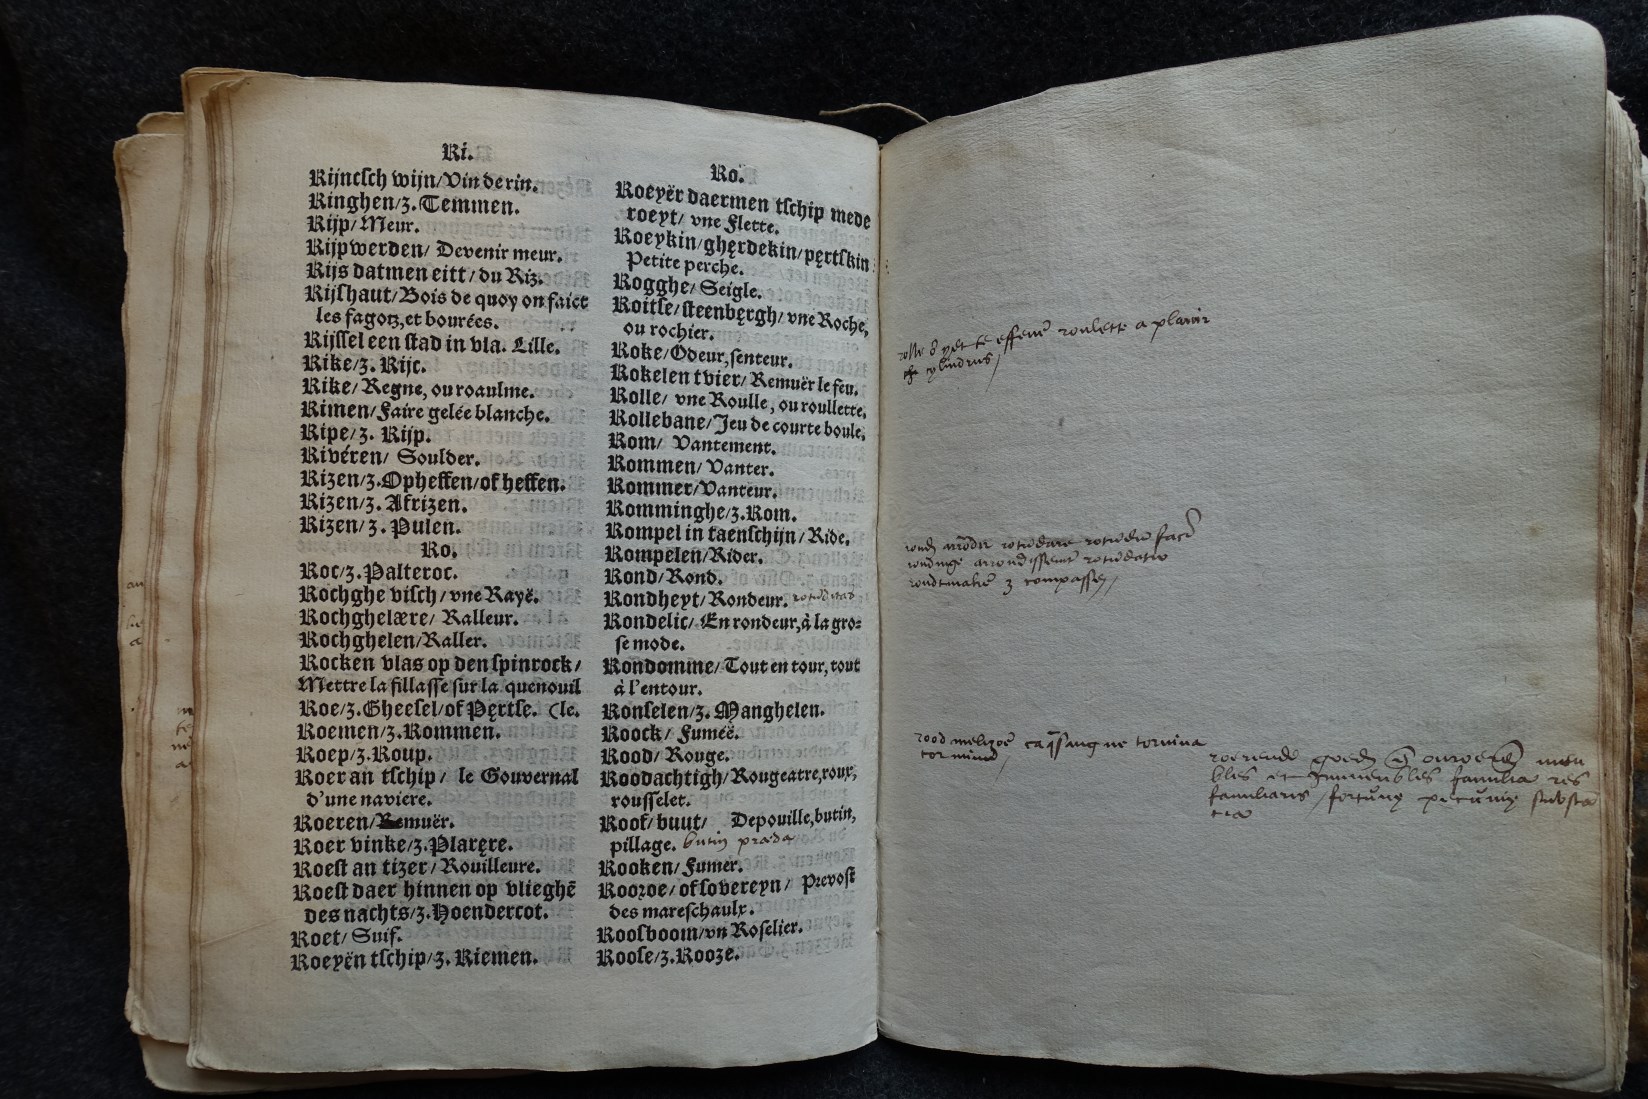 Ri.
Rijnesch wijn/Vin de rin.
Ringhen/z. Temmen.
Rijp/Meur.
Rijp werden/ Devenir meur.
Rijs datmen eitt/du Riz.
Rijshaut/Bois de quoy on faict
les fagotz, et bourées.
Rijssel een stad in vla. Lille.
Rike/z. Rijc.
Rike/ Regne, ou roaulme.
Rimen/Faire gelée blanche.
Ripe/z. Rijp.
Rivéren/ Soulder.
Rizen/z.Opheffen/of heffen.
Rizen/z. Afrizen.
Rizen/z. Pulen.
Ro.
Roc/z.Palteroc.
Rochghe visch/vne Rayë.
Rochghelære/ Ralleur.
Rochghelen/Raller.
Rocken vlas op den spinrock/
Mettre la fillasse sur la quenouil
Roe/z.Gheesel/of Pęrtse. (le.
Roemen/z.Rommen.
Roep/z.Roup.
Roer an tschip/ le Gouvernal
d'une naviere.
Roeren/Remuër.
Roer vinke/z.Plaręre.
Roest an tizer/Rouilleure.
Roest daer hinnen op vlieghē
des nachts/z.Hoendercot.
Roet/ Suif.
Roeyën tschip/z. Riemen.
Ro.
Roeyër daermen tschip mede
roeyt/ vne Flette.
Roeykin/ghęrdekin/pęrtskin
Petite perche.
Rogghe/ Seigle.
Roitse/steenbęrgh/vne Roche,
ou rochier.
Roke/Odeur, senteur.
Rokelen tvier/Remuër le feu.
Rolle/ vne Roulle, ou roullette.
Rollebane/Jeu de courte boule.
Rom/ Vantement.
Rommen/Vanter.
Rommer/Vanteur.
Romminghe/z.Rom.
Rompel in taenschijn/Ride.
Rompelen/Rider.
Rond/Rond.
Rondheyt/Rondeur.
Rondelic/ En rondeur, à la gros-
se mode.
Rondomme/Tout en tour, tout
à l'entour.
Ronselen/z. Manghelen.
Roock/ Fumëe.
Rood/Rouge.
Roodachtigh/Rougeatre, roux,
rousselet.
Roof/buut/ Depouille, butin,
pillage. butin praeda
Rooken/Fumer.
Roozoe/of sovereyn/ Prevost
des mareschaulx.
Roosboom/vn Roselier.
Roose/z.Rooze.
effenē roulette a planir
cylindrus
rotūdare
arrondissemēt rotūdatio
z compassen
rood melizoē caq̄sangue tormina
torminum
roerende goedē ou
bles et Immeubles familia res
familiaris / fortunę pecunię substā
tia